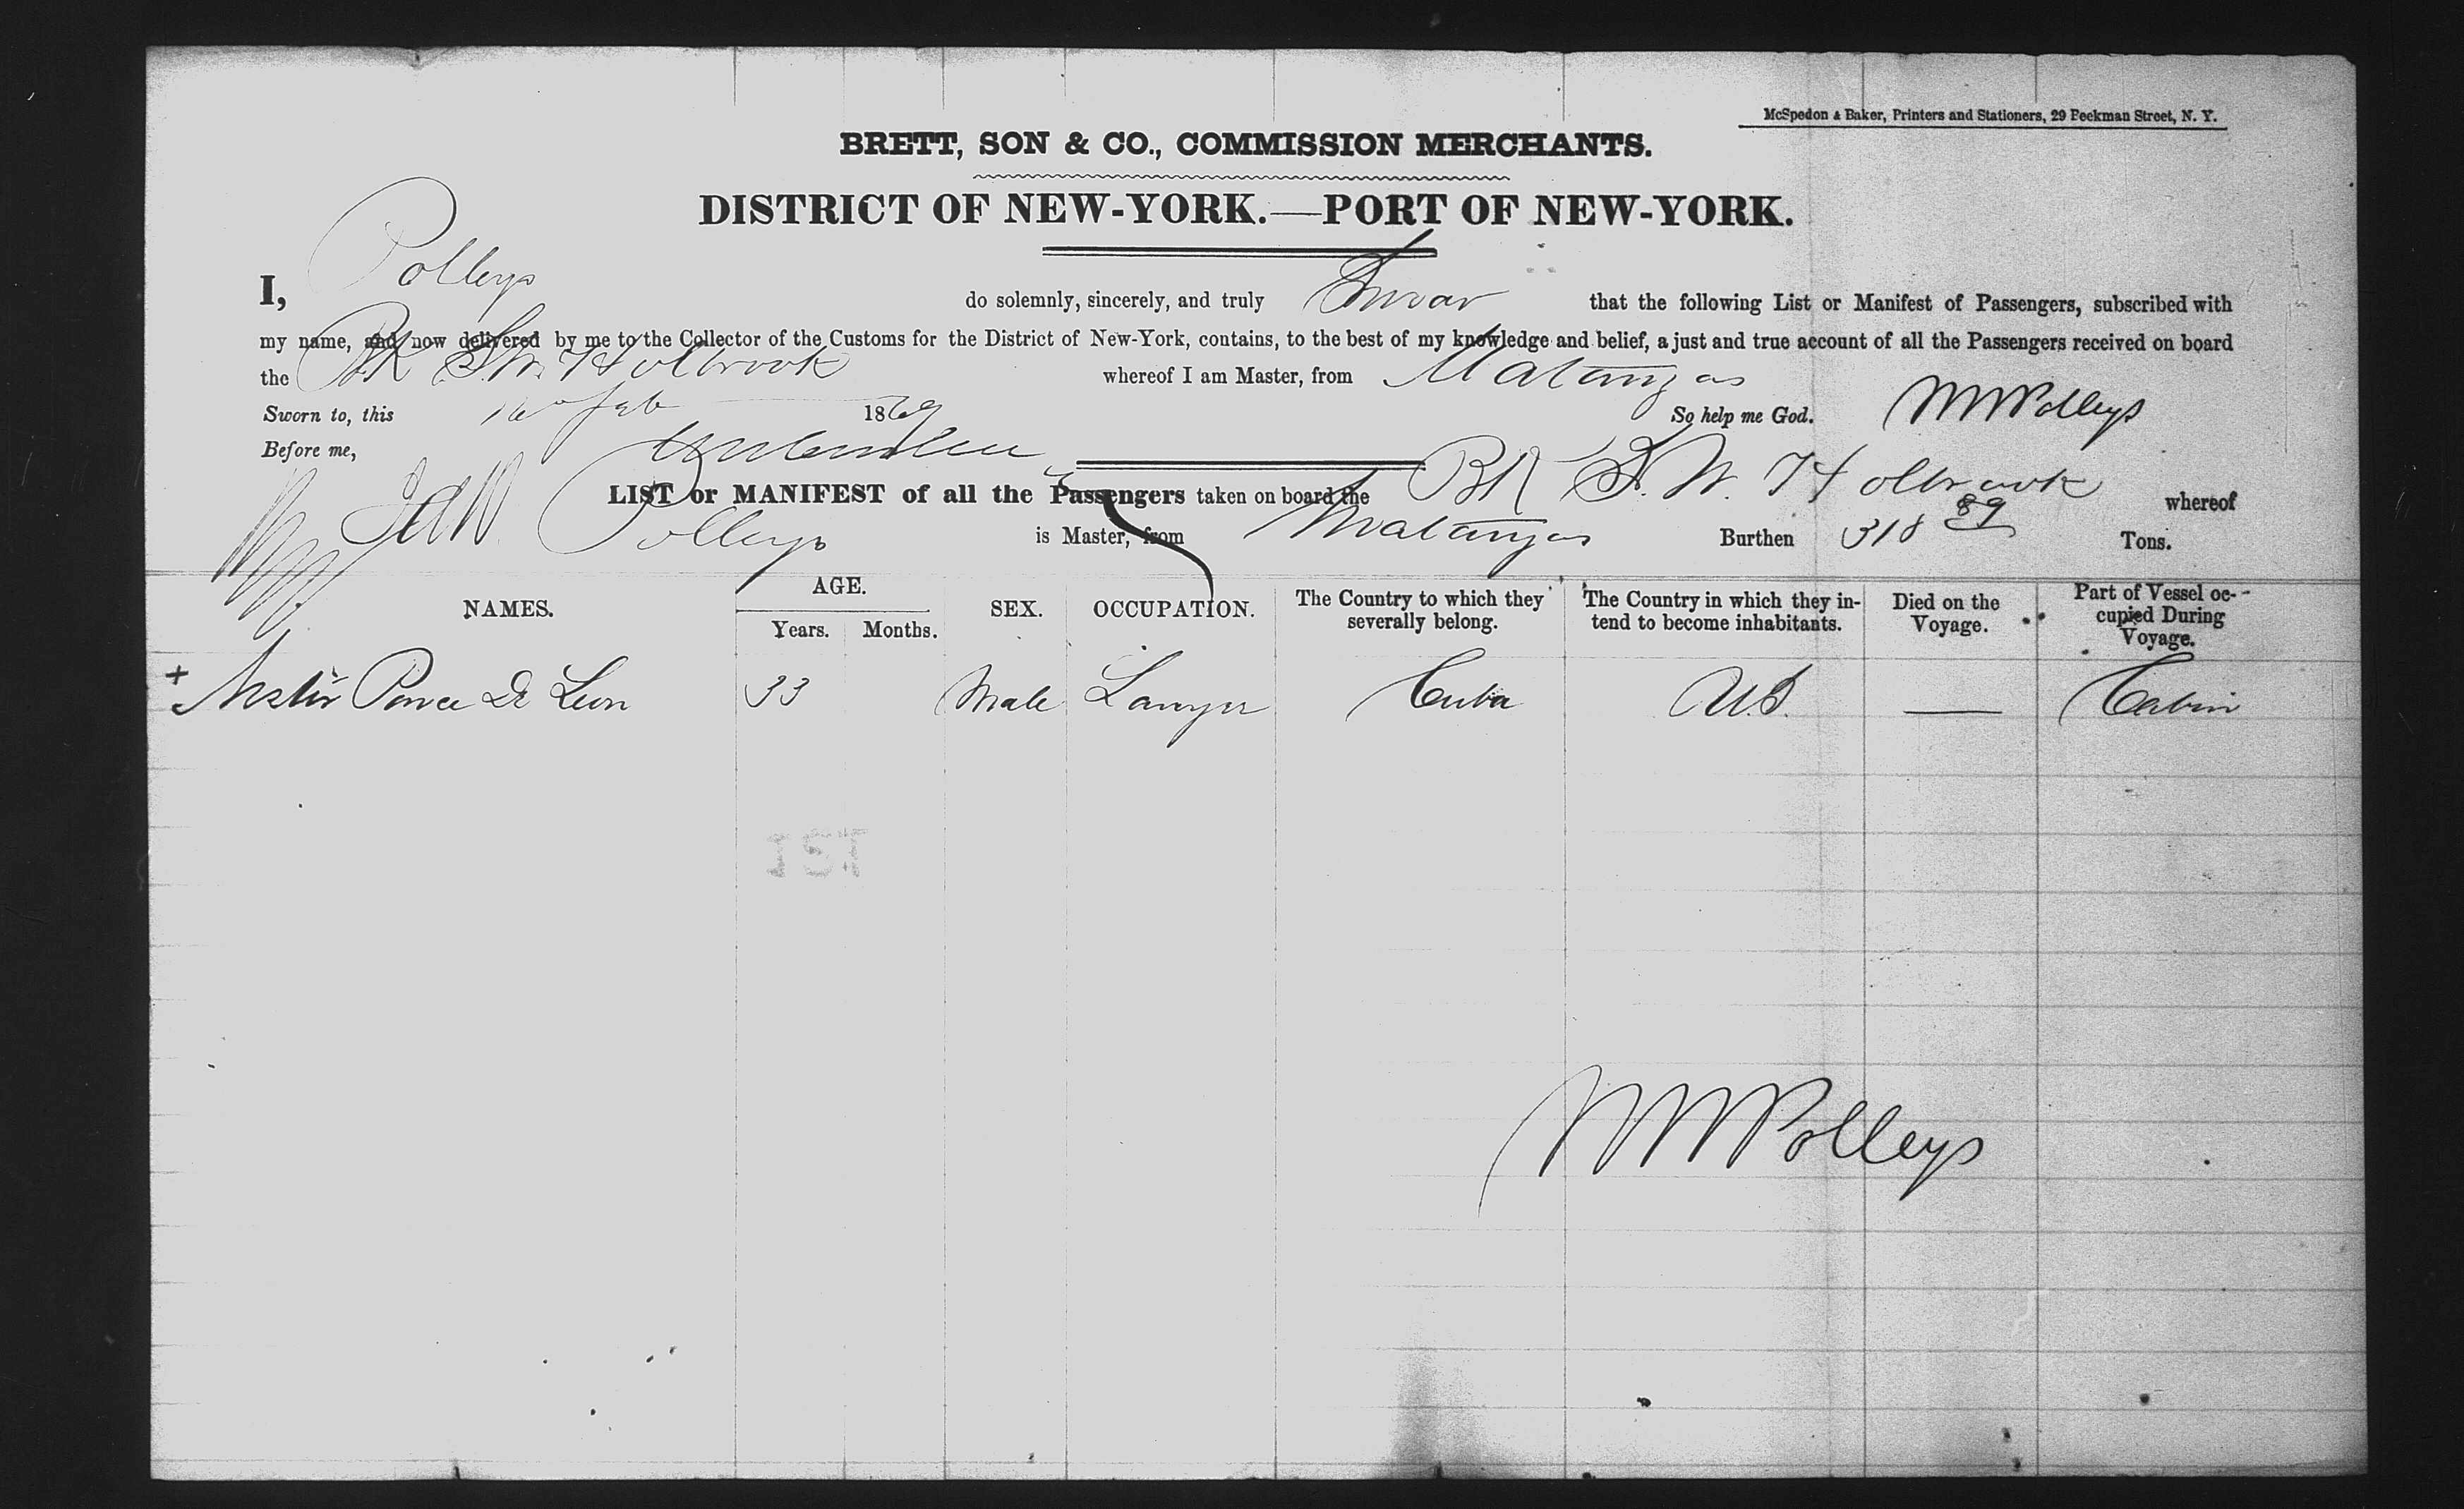 McSpedon & Baker, Printers and Stationers, 29 Beekman Street, N. Y.
BRETT, SON & CO., COMMISSION MERCHANTS.
DISTRICT OF NEW-YORK.—PORT OF NEW-YORK.
I, Polleys do solemnly, sincerely, and truly Swear that the following List or Manifest of Passengers, subscribed with
my name, and now delivered by me to the Collector of the Customs for the District of New-York, contains, to the best of my knowledge and belief, a just and true account of all the Passengers received on board
the BK S.W. Holbrook whereof I am Master, from Matanzas
Sworn to, this 16 Feb 1869 So help me God. W W Polleys
Before me,
LIST or MANIFEST of all the Passengers taken on board the BK S. W. Holbrook whereof
Polleys is Master, from Matanzas Burthen 318 89 Tons.
NAMES. AGE. Years. Months. SEX. OCCUPATION. The Country to which they severally belong. The Country in which they in-tend to become inhabitants. Died on the Voyage. Part of Vessel oc-cupied During Voyage.
+ Nestor Ponce De Leon 33 Male Lawyer Cuba U.S. — Cabin
W W Polleys